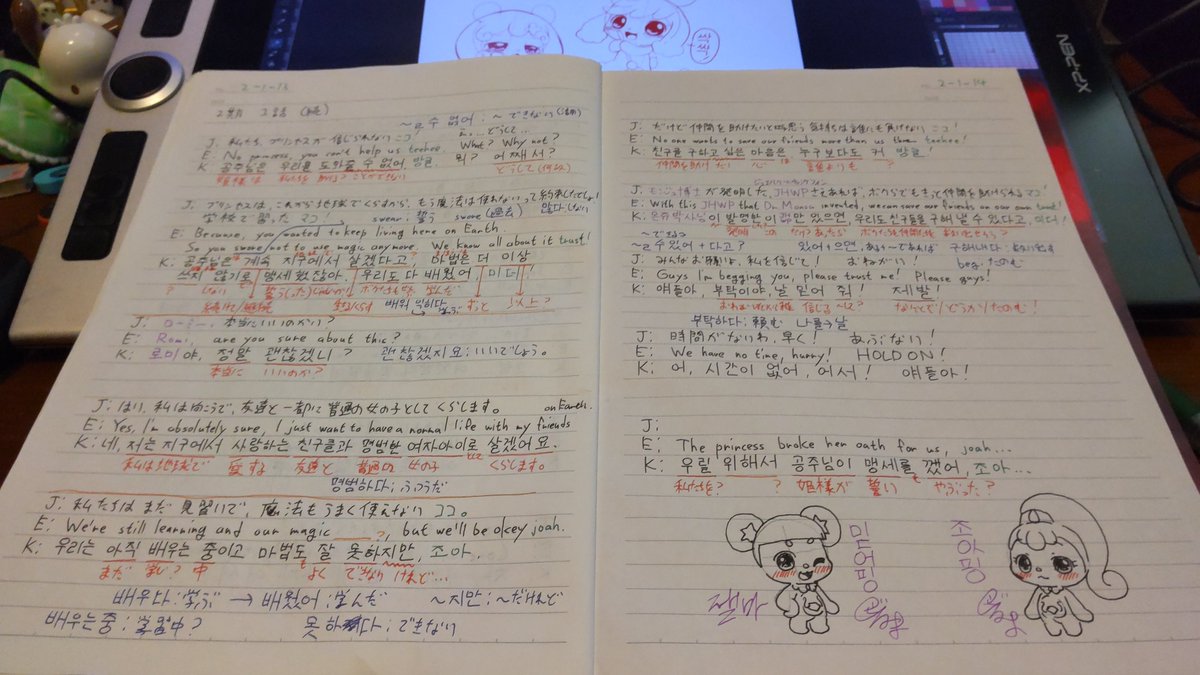 싹싹
XP-PEN
2-1-13
2期 2話 (続)
~ㄹ 수 없어:~できない(活用)
え…、どうして…
J: 私たち、プリンセスが信じられないココ!
What? Why not?
E: No princess, you can't help us teehee.
뭐? 어째서?
K: 공주님은 우리를 도와줄 수 없어 방글.
姫様は 私たちを 助けることができない
どうして(何故)
J: プリンセスは、これから地球でくらすから、もう魔法は使わないって約束したでしょ!
学校で習ったマコ!
swear:誓う swore(過去)
않다:しない
E: Because, you wanted to keep living here on Earth.
So you swore not to use magic anymore. We know all about it trust!
K: 공주님은 계속 지구에서 살겠다고 마법은 더 이상
쓰지 않기로 맹세했잖아. 우리도 다 배웠어 미더!
? しない 誓う(った)じゃないか ボクたちも 学んだ
배워 익히다
ずっと
以上?
J: ローミー、本当にいいのかい?
E: Romi, are you sure about this?
K: 로미야, 정말 괜찮겠니?
괜찮겠지요:いいでしょう。
本当に いいのか?
J: はい、私は向こうで、友達と一緒に普通の女の子としてくらします。
on Earth.
E: Yes, I'm absolutely sure, I just want to have a normal life with my friends
K: 네, 저는 지구에서 사랑하는 친구들과 평범한 여자아이로 살겠어요.
私は地球で 愛する 友達と 普通の 女の子 くらします。
평범하다:ふつうだ
J: 私たちはまだ見習いで、魔法もうまく使えないココ!
E: We're still learning and our magic ?, but we'll be okey joah.
K: 우리는 아직 배우는 중이고 마법도 잘 못하지만, 조아.
まだ 学ぶ? 中 よく できない けれど…
배우다:学ぶ → 배웠어:学んだ
~지만:~だけれど
배우는 중:学習中?
못하다:できない
2-1-14
J: だけど仲間を助けたいと思う気持ちは誰にも負けないココ!
E: No one wants to save our friends more than us teehee!
K: 친구를 구하고 싶은 마음은 누구보다도 커 방글!
仲間を助けたい は 誰よりも ?
J: モンジュ博士が発明した、JHWPさえあれば、ボクらでもきっと仲間を助けられるマコ!
E: With this JHWP that Dr. Monsu invented, we can save our friends on our own trust!
K: 몬쥬 박사님이 발명한 이 랩만 있으면, 우리도 친구들을 구해 낼 수 있다고, 미더!
~ㄹ 수 있어+다고?
있어+으면, あれ+~であれば
구해내다:救い出す
J: みんなお願いよ、私を信じて! おねがい!
beg:たのむ
E: Guys I'm begging you, please trust me! Please guys!
K: 얘들아, 부탁이야, 날 믿어 줘! 제발!
なんとか/どうかたのむ!
부탁하다:頼む 나를→날
J: 時間がないわ、早く! あぶない!
E: We have no time, hurry! HOLD ON!
K: 어, 시간이 없어, 어서! 얘들아!
J:
E: The princess broke her oath for us, joah...
K: 우릴 위해서 공주님이 맹세를 깼어, 조아...
私たちを? ? 姫様が 誓い やぶった?
믿어핑
조아핑